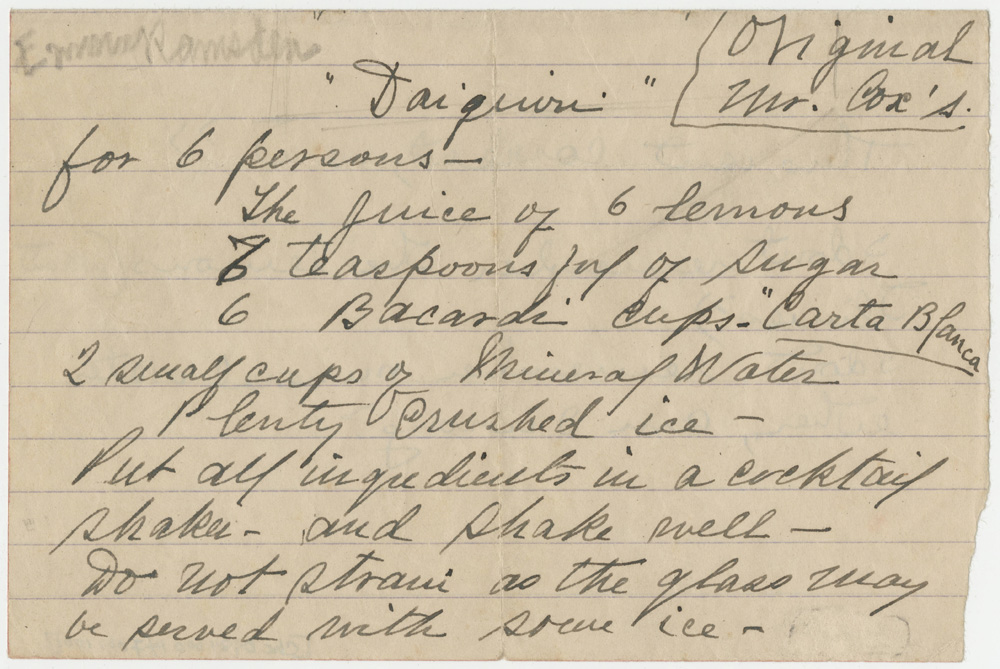 Original
"Daiquiri"
Mr. Cox's.
for 6 persons—
The juice of 6 lemons
6 teaspoonsful of sugar
6 Bacardi cups - "Carta Blanca
2 small cups of Mineral Water
Plenty crushed ice —
Put all ingredients in a cocktail
shaker - and shake well —
Do not strain as the glass may
be served with some ice -